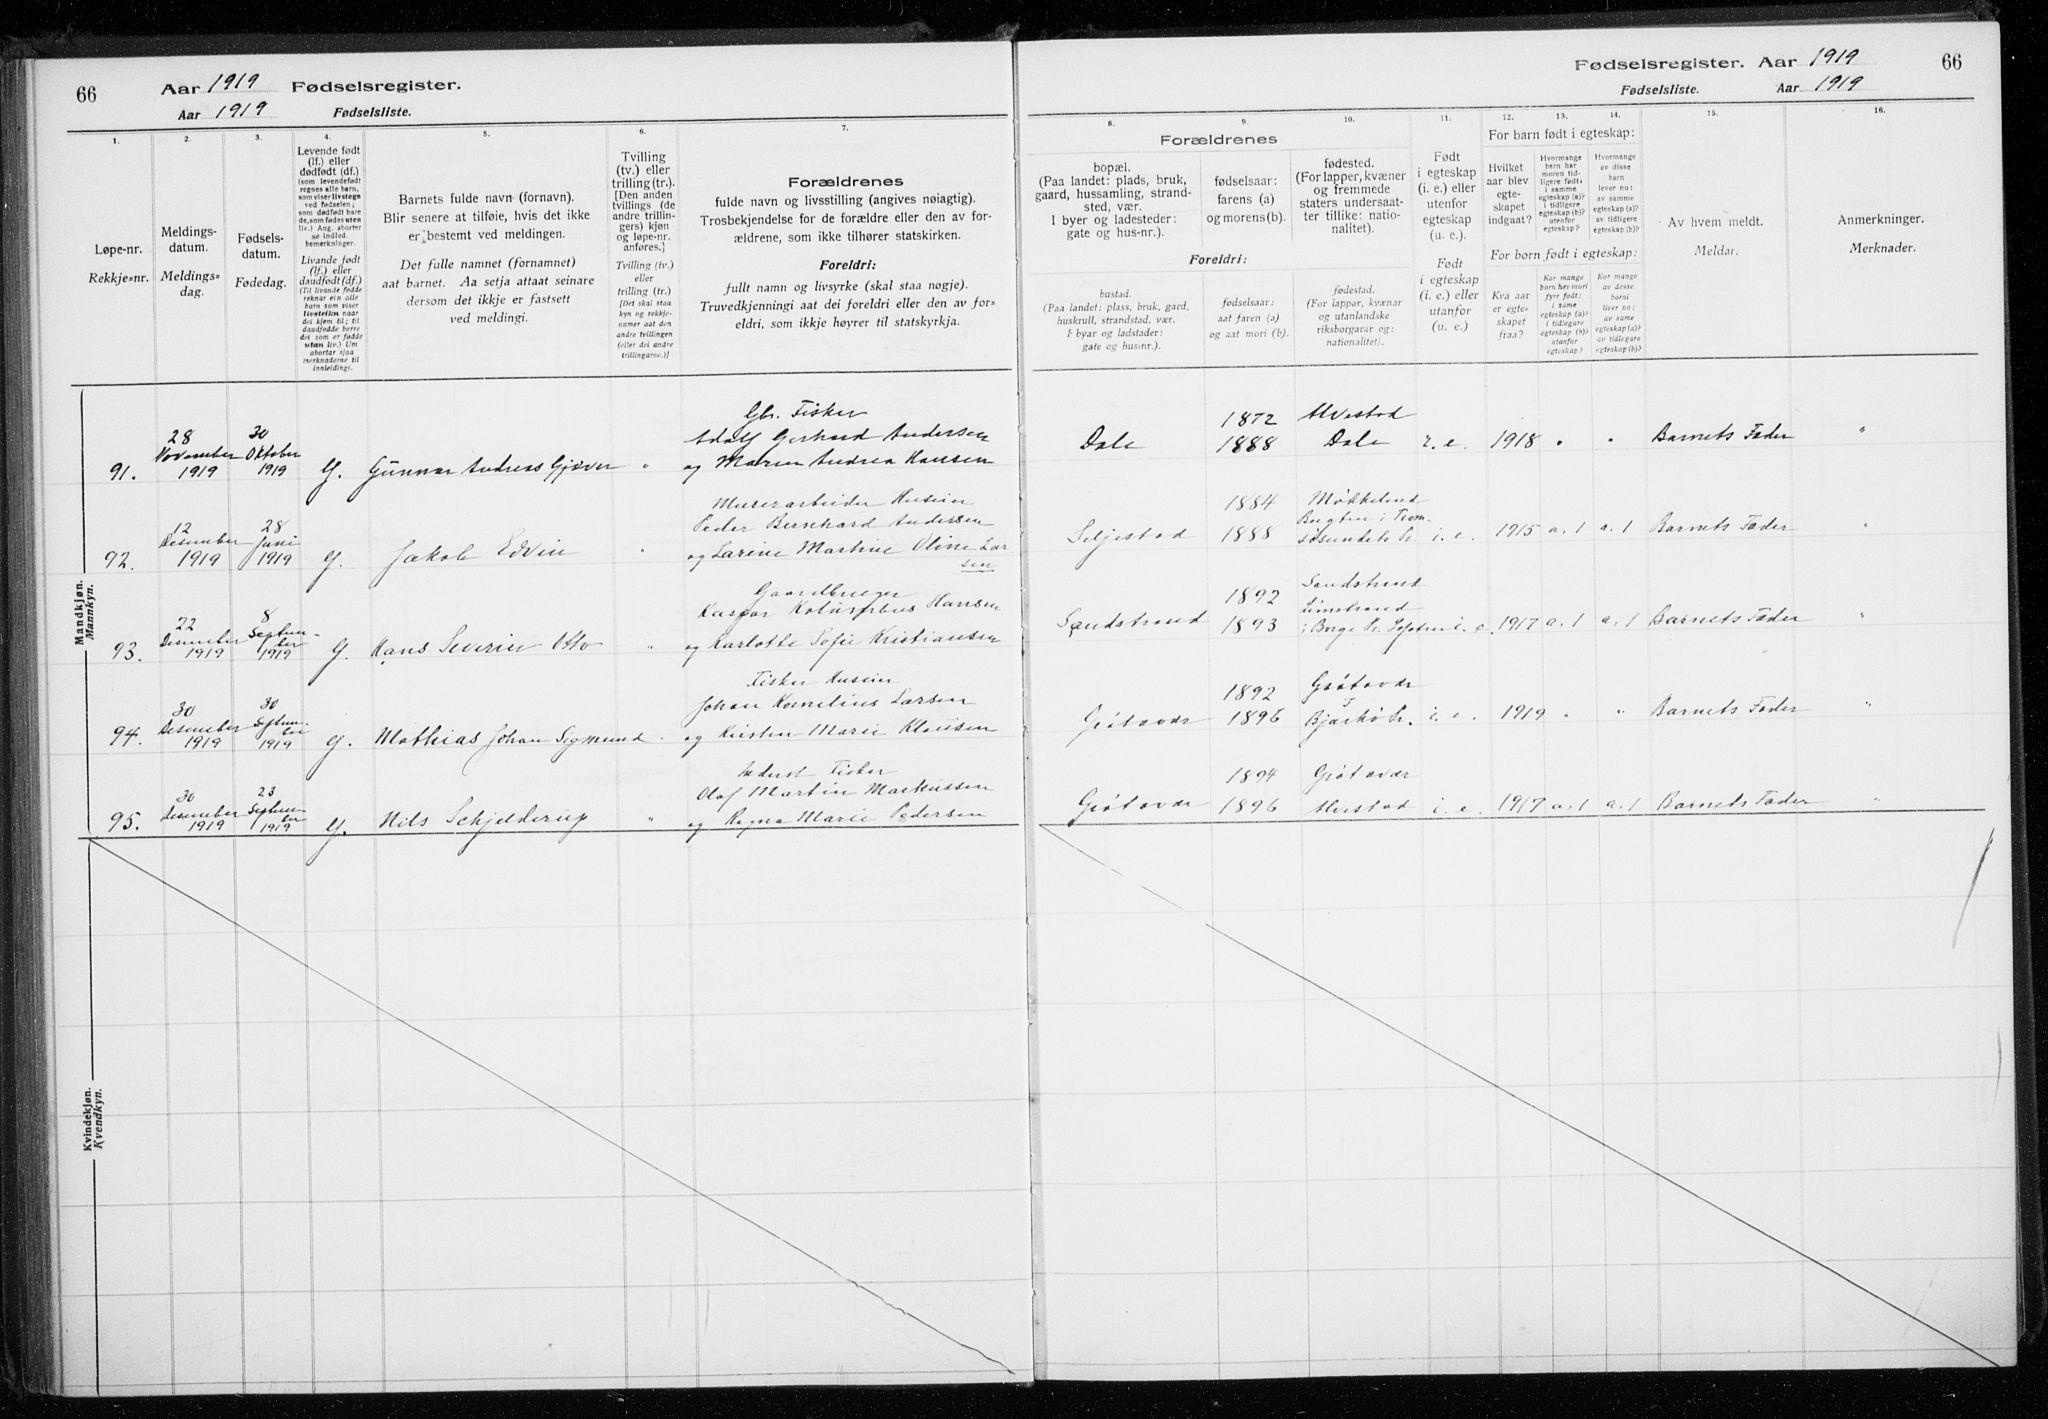 66
Aar 1919 Fødselsregister.
Aar 1919 Fødselsliste.
1.
2.
3.
4.
5.
6.
7.
Løpe-nr.
Rekkje=nr.
Meldings-
datum.
Meldings=
dag.
Fødsels-
datum.
Fødedag.
Levende født
(lf.) eller
dødfødt (df.)
(som levendefødt
regnes alle barn,
som viser livstegn
ved fødselen;
som dødfødt bare
de, som fødes uten
liv.) Ang. aborter
se indled.
bemerkninger.
Livande født
(lf.) eller
daudfødt (df.)
(Til livande fødde
reknar ein alle
barn som viser
livsteikn naar
dei kjem til; til
daudfødde berre
dei som er fødde
utan liv.) Um
abortar sjaa
merknaderne til
innleidingi.
Barnets fulde navn (fornavn).
Blir senere at tilføie, hvis det ikke
er bestemt ved meldingen.
Det fulle namnet (fornamnet)
aat barnet. Aa setja attaat seinare
dersom det ikkje er fastsett
ved meldingi.
Tvilling
(tv.) eller
trilling (tr.).
[Den anden
tvillings (de
andre trillin-
gers) kjøn
og løpe-nr.
anføres.]
Tvilling (tv.)
eller
trilling (tr.)
[Det skal staa
kyn og rekkje-
numer aat den
andre tvillingen
(eller dei andre
trillingarne.)]
Forældrenes
fulde navn og livsstilling (angives nøiagtig).
Trosbekjendelse for de forældre eller den av for-
ældrene, som ikke tilhører statskirken.
Foreldri:
fullt namn og livsyrke (skal staa nøgje).
Truvedkjenningi aat dei foreldri eller den av for=
eldri, som ikkje høyrer til statskyrkja.
Mandkjøn.
Mannkyn.
91.
28
November
1919
30
Oktober
1919
Gunnar Andreas Gjæver
"
Gbr. Fisker
Adolf Gerhard Andersen
og Maren Andrea Hansen
92.
12
Desember
1919
28
Juni
1919
Jakob Edvin
"
Murerarbeider Huseier
Peder Bernhard Andersen
og Larine Martine Oline Lar
sen
93.
22
Desember
1919
8
Septem-
ber
1919
Hans Severin Otto
"
Gaardbruger
Kaspar Kolumbus Hansen
og Karlotte Sofie Kristiansen
94.
30
Desember
1919
30
Septem-
ber
1919
Mathias Johan Sigmund
Fisker Huseier
Johan Kornelius Larsen
og Kirsten Marie Klausen
95.
30
Desember
1919
23
Septem-
ber
1919
Nils Schjelderup
"
Inderst Fisker
Olaf Martin Markussen
og Ragna Marie Pedersen
Kvindekjøn.
Kvendkyn.
Fødselsregister. Aar 1919
66
Fødselsliste. Aar 1919
8.
9.
10.
11.
12.
13.
14.
15.
16.
Forældrenes
bopæl.
(Paa landet: plads, bruk,
gaard, hussamling, strand-
sted, vær.
I byer og ladesteder:
gate og hus-nr.).
fødselsaar:
farens (a)
og morens (b).
fødested.
(For lapper, kvæner
og fremmede
staters undersaat-
ter tillike: natio-
nalitet).
Foreldri:
bustad.
(Paa landet: plass, bruk, gard,
huskrull, strandstad, vær.
I byar og ladstader:
gate og hus=nr.).
fødselsaar:
aat faren (a)
og aat mori (b).
fødestad.
(For lappar, kvænar
og utanlandske
riksborgarar og:
nationalitet).
Født
i egteskap
(i. e.) eller
utenfor
egteskap
(u. e.).
Født
i egteskap
(i. e.) eller
utanfor
(u. e.).
For barn født i egteskap:
Hvilket
aar blev
egte-
skapet
indgaat?
Hvormange
barn har
moren tid-
ligere født:
i samme
egteskap (a)?
i tidligere
egteskap (b)?
utenfor
egteskap?
Hvormange
av disse
barn
lever nu:
av samme
egteskap (a)?
av tidligere
egteskap (b)?
For born født i egteskap:
Kva aar
er egte-
skapet
fraa?
Kor mange
born hev mori
fyrr født:
i same
egteskap (a)?
i tidlegare
egteskap (b)?
utanfor
egteskap?
Kor mange
av desse
borni
liver nu:
av same
egteskap (a)?
av tidlegare
egteskap (b)?
Av hvem meldt.
Meldar.
Anmerkninger.
Merknader.
Dale
1872
1888
Dale
i. e.
1918
"
"
Barnets Fader
"
Seljestad
1884
1888
Møkkeland
i. e.
1915
a. 1
a. 1
Barnets Fader
"
Sandstrand
1892
1893
Sandstrand
Limstrand
i Borge Pr. Lofoten
i. e.
1917
a. 1
a. 1
Barnets Fader
"
Grøtavær
1892
1896
Grøtavær
Bjarkø Pr.
i. e.
1919
"
"
Barnets Fader
"
Grøtavær
1894
1896
Grøtavær
i. e.
1917
a. 1
a. 1
Barnets Fader
"